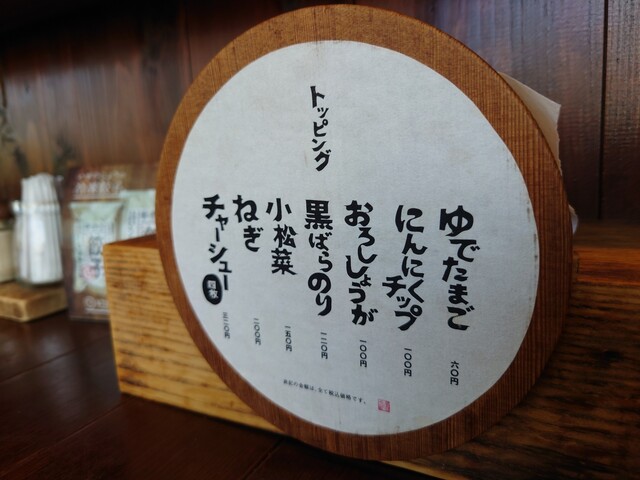 トッピング
ゆでたまご 六〇円
にんにくチップ 一〇〇円
おろししょうが 一〇〇円
黒ばらのり 一二〇円
小松菜 一五〇円
ねぎ 二〇〇円
チャーシュー 三二〇円
表記の金額は、全て税込価格です。